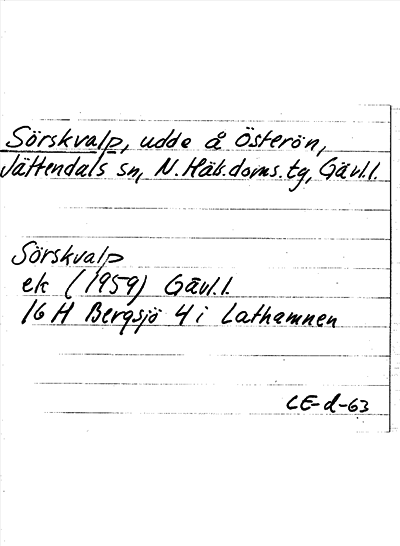 Sörskvalp, udde å Österön,
Jättendals sn, N. Häls. doms. tg, Gävl. l.
Sörskvalp
ek (1959) Gävl. l.
16 H Bergsjö 4 i Lathamnen
CE-d-63